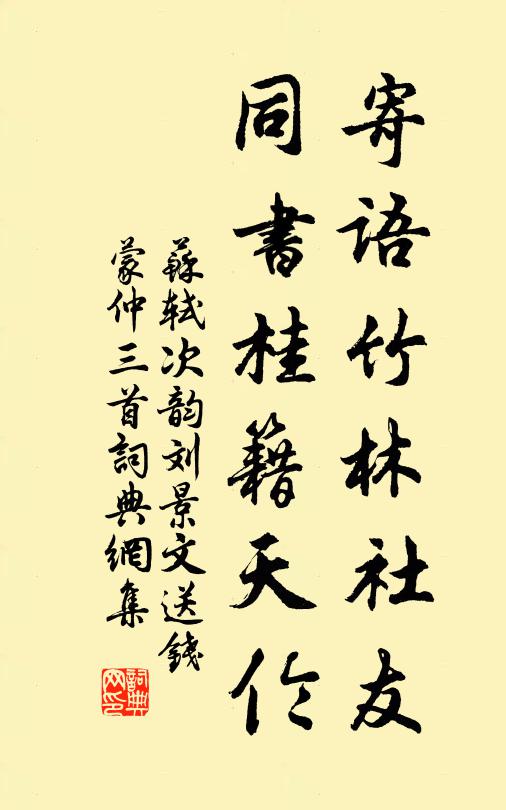 寄语竹林社友
同書桂籍天伦
蘇轼次韵刘景文送錢
蒙仲三首詞典網集
詞典网印